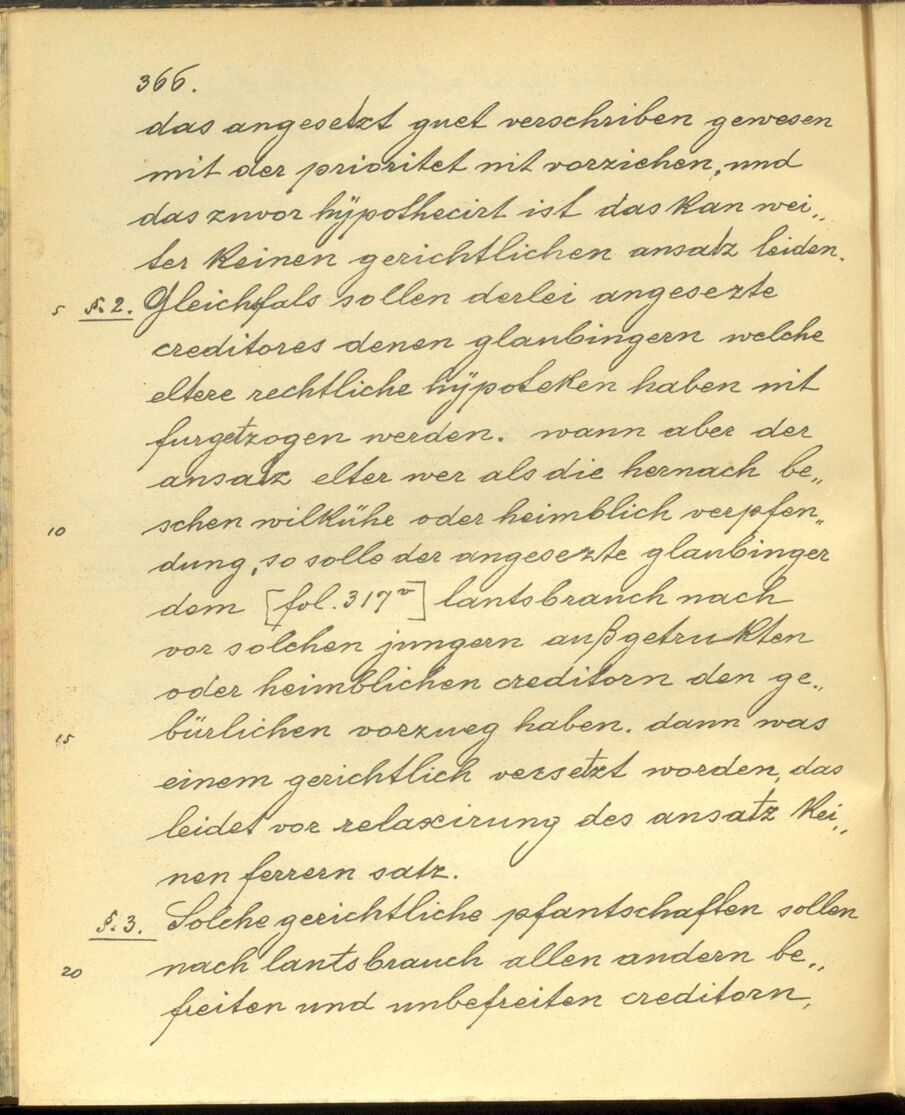 366.
das angesetzt guet verschriben gewesen
mit der prioritet nit vorziehen, und
das zuvor hÿpothecirt ist das kan wei„
ter keinen gerichtlichen ansatz leiden.
5 §. 2. Gleichfals sollen derlei angesezte
creditores denen glaubingern welche
eltere rechtliche hÿpoteken haben nit
furgetzogen werden. wann aber der
ansatz elter wer als die hernach be„
10 schen wilkühe oder heimblich verpfen„
dung, so solle der angesezte glaubinger
dem [fol. 317v] lantsbrauch nach
vor solchen jungern außgetrukten
oder heimblichen creditorn den ge„
15 bürlichen vorzueg haben. dann was
einem gerichtlich versetzt worden, das
leidet vor relaxirung des ansatz kei„
nen ferrern satz.
§. 3. Solche gerichtliche pfantschaften sollen
20 nach lantsbrauch allen andern be„
freiten und unbefreiten creditorn,